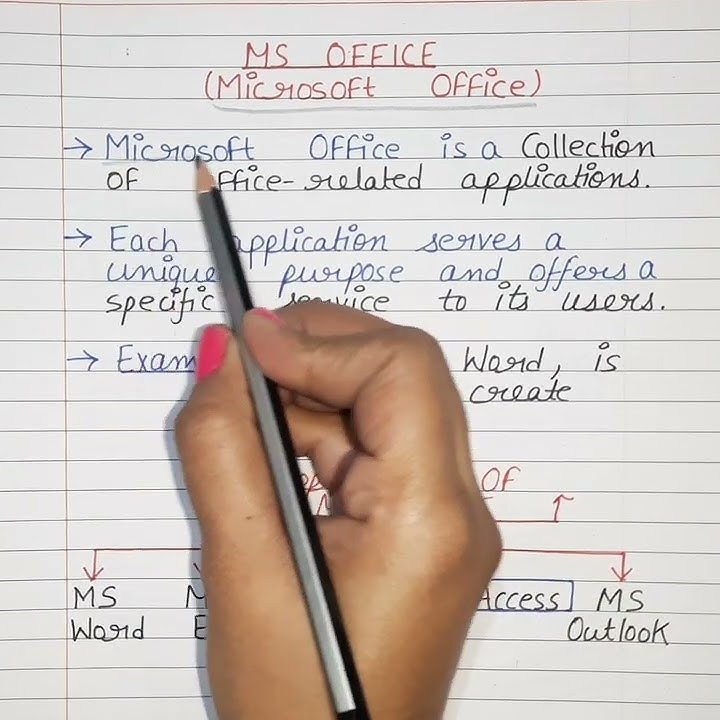 MS OFFICE
(Microsoft Office)
→ Microsoft Office is a Collection
OF ffice-related applications.
→ Each application serves a
unique purpose and offers a
specific service to its users.
→ Exam Word, is
create
OF
MS Access MS
Word Outlook